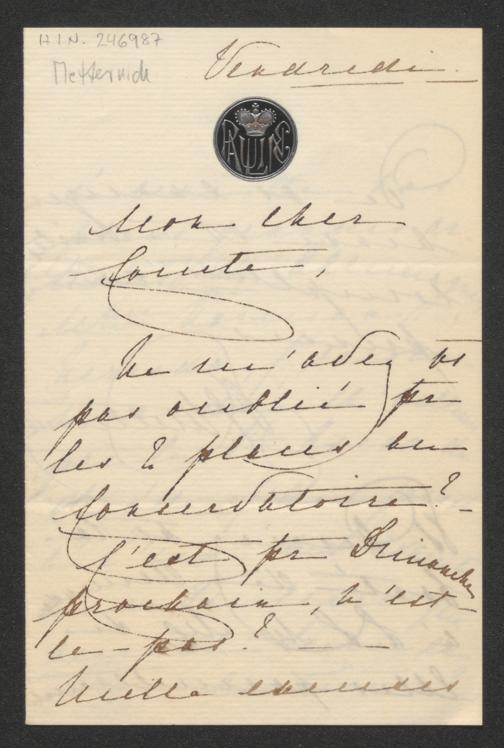 H.I.N. 246987
Metternich
Vendredi
PAULINE
Mon cher
Comte,
Ne m'avez vs
pas oublié pr
les 2 places au
Conservatoire? -
C'est pr Dimanche
prochain, n'est-
ce-pas? —
Mille excuses